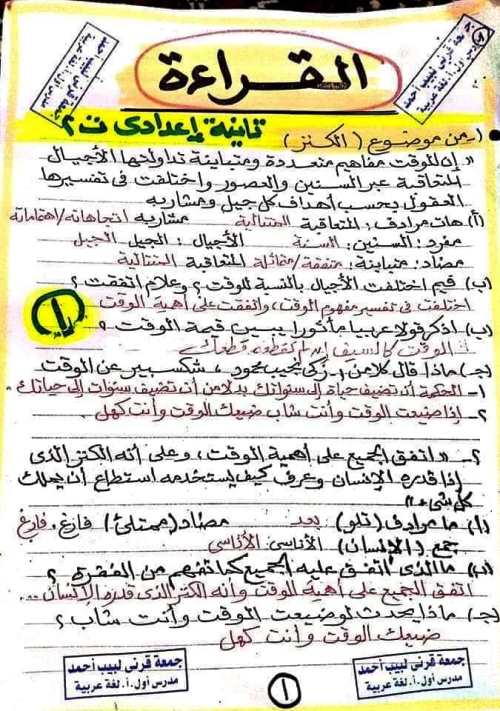 القراءة
جمعة قرنى لبيب أحمد
مدرس أول أ. لغة عربية
جمعة قرنى لبيب أحمد
مدرس أول أ. لغة عربية
ثانية إعدادى ت ٢
١ـ من موضوع ( الكنز )
« إن للوقت مفاهيم متعددة ومتباينة تداولتها الأجيال
المتعاقبة عبر السنين والعصور واختلفت فى تفسيرها
العقول بحسب أهداف كل جيل ومشاربه
(أ) هات مرادف: المتعاقبة المتتالية مشاربه اتجاهاته/اهتماماته
مفرد: السنين: السنة الأجيال: الجيل الجيل
مضاد: متباينة: متفقة/متماثلة المتعاقبة المتتالية
(ب) فيم اختلفت الأجيال بالنسبة للوقت؟ وعلام اتفقت؟
اختلفت فى تفسير مفهوم الوقت، واتفقت على أهمية الوقت
١
(ب) اذكر قولا عربيا مأثورا يبين قيمة الوقت؟
الوقت كالسيف إن لم تقطعه قطعك
(جـ) ماذا قال كلا من: زكى نجيب محمود، شكسبير عن الوقت
١- الحكمة أن تضيف حياة إلى سنواتك بدلا من أن تضيف سنوات إلى حياتك
٢- إذا ضيعت الوقت وأنت شاب ضيعك الوقت وأنت كهل
٢- « اتفق الجميع على أهمية الوقت، وعلى أنه الكنز الذى
إذا قدره الإنسان وعرف كيف يستخدمه استطاع أن يملك
كل شىء »
(أ) ما مرادف (تلو) بعد مضاد (ممتلئ) فارغ. فارغ
جمع (الإنسان) الأناسى الأناسى
(ب) ما الذى اتفق عليه الجميع كما تفهم من الفقرة؟
اتفق الجميع على أهمية الوقت وأنه الكنز الذى قدره الإنسان ...
(جـ) ماذا يحدث لو ضيعت الوقت وأنت شاب؟
ضيعك الوقت وأنت كهل
جمعة قرنى لبيب أحمد
مدرس أول. أ. لغة عربية
١
جمعة قرنى لبيب أحمد
مدرس أول. أ. لغة عربية